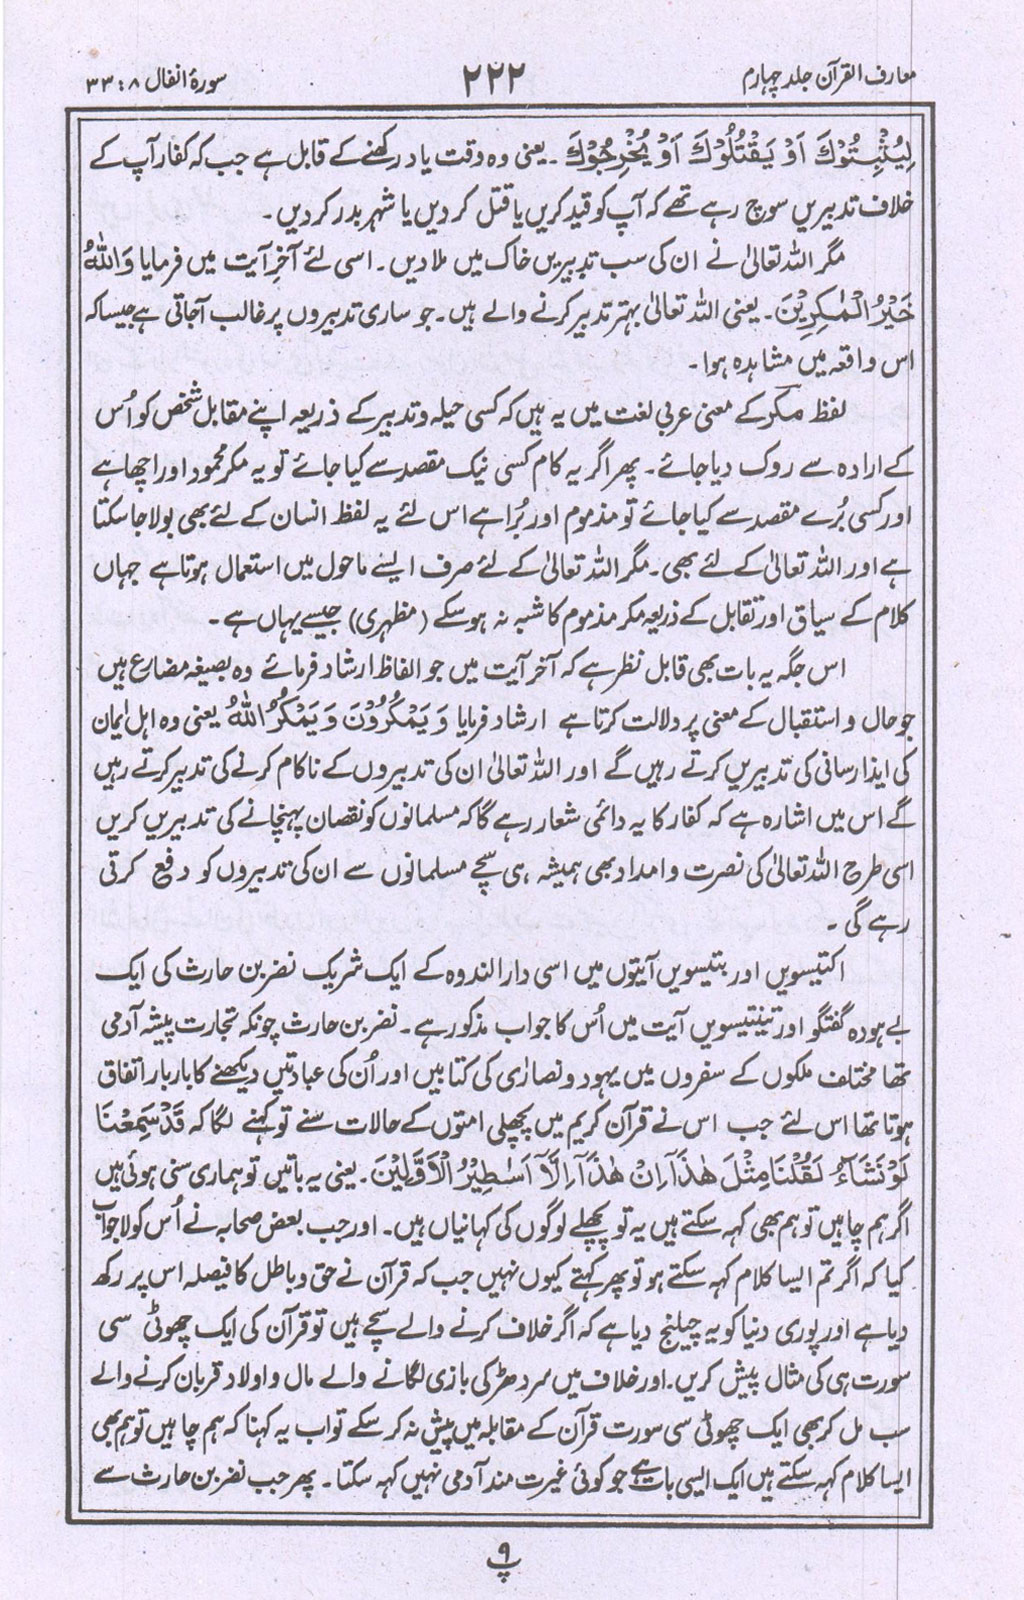 معارف القرآن جلد چہارم
۲۲۲
سورۂ انفال ۸ : ۳۳
لِيُثْبِتُوْكَ اَوْ يَقْتُلُوْكَ اَوْ يُخْرِجُوْكَ ۔ یعنی وہ وقت یاد رکھنے کے قابل ہے جب کہ کفار آپ کے
خلاف تدبیریں سوچ رہے تھے کہ آپ کو قید کریں یا قتل کر دیں یا شہر بدر کر دیں ۔
مگر اللہ تعالیٰ نے ان کی سب تدبیریں خاک میں ملا دیں ۔ اسی لئے آخر آیت میں فرمایا وَاللّٰهُ
خَيْرُ الْمٰكِرِيْنَ ۔ یعنی اللہ تعالیٰ بہتر تدبیر کرنے والے ہیں ۔ جو ساری تدبیروں پر غالب آجاتی ہے جیسا کہ
اس واقعہ میں مشاہدہ ہوا ۔
لفظ مکر کے معنی عربی لغت میں یہ ہیں کہ کسی حیلہ و تدبیر کے ذریعہ اپنے مقابل شخص کو اُس
کے ارادہ سے روک دیا جائے ۔ پھر اگر یہ کام کسی نیک مقصد سے کیا جائے تو یہ مکر محمود اور اچھا ہے
اور کسی بُرے مقصد سے کیا جائے تو مذموم اور بُرا ہے اس لئے یہ لفظ انسان کے لئے بھی بولا جا سکتا
ہے اور اللہ تعالیٰ کے لئے بھی ۔ مگر اللہ تعالیٰ کے لئے صرف ایسے ماحول میں استعمال ہوتا ہے جہاں
کلام کے سیاق اور تقابل کے ذریعہ مکر مذموم کا شبہ نہ ہو سکے (مظہری) جیسے یہاں ہے ۔
اس جگہ یہ بات بھی قابل نظر ہے کہ آخر آیت میں جو الفاظ ارشاد فرمائے وہ بصیغہ مضارع ہیں
جو حال و استقبال کے معنی پر دلالت کرتا ہے ارشاد فرمایا وَيَمْكُرُوْنَ وَيَمْكُرُ اللّٰهُ یعنی وہ اہل ایمان
کی ایذا رسانی کی تدبیریں کرتے رہیں گے اور اللہ تعالیٰ ان کی تدبیروں کے ناکام کرنے کی تدبیر کرتے رہیں
گے اس میں اشارہ ہے کہ کفار کا یہ دائمی شعار رہے گا کہ مسلمانوں کو نقصان پہنچانے کی تدبیریں کریں
اسی طرح اللہ تعالیٰ کی نصرت و امداد بھی ہمیشہ ہی سچے مسلمانوں سے ان کی تدبیروں کو دفع کرتی
رہے گی ۔
اکتیسویں اور بتیسویں آیتوں میں اسی دار الندوہ کے ایک شریک نضر بن حارث کی ایک
بے ہودہ گفتگو اور تینتیسویں آیت میں اُس کا جواب مذکور ہے ۔ نضر بن حارث چونکہ تجارت پیشہ آدمی
تھا مختلف ملکوں کے سفروں میں یہود و نصاریٰ کی کتابیں اور اُن کی عبادتیں دیکھنے کا بار بار اتفاق
ہوتا تھا اس لئے جب اس نے قرآن کریم میں پچھلی امتوں کے حالات سنے تو کہنے لگا کہ قَدْ سَمِعْنَا
لَوْ نَشَآءُ لَقُلْنَا مِثْلَ هٰذَآ اِنْ هٰذَآ اِلَّآ اَسَاطِيْرُ الْاَوَّلِيْنَ ۔ یعنی یہ باتیں تو ہماری سنی ہوئی ہیں
اگر ہم چاہیں تو ہم بھی کہہ سکتے ہیں یہ تو پچھلے لوگوں کی کہانیاں ہیں ۔ اور جب بعض صحابہ نے اُس کو لاجواب
کیا کہ اگر تم ایسا کلام کہہ سکتے ہو تو پھر کہتے کیوں نہیں جب کہ قرآن نے حق و باطل کا فیصلہ اس پر رکھ
دیا ہے اور پوری دنیا کو یہ چیلنج دیا ہے کہ اگر خلاف کرنے والے سچے ہیں تو قرآن کی ایک چھوٹی سی
سورت ہی کی مثال پیش کریں ۔ اور خلاف میں سر دھڑ کی بازی لگانے والے مال و اولاد قربان کرنے والے
سب مل کر بھی ایک چھوٹی سی سورت قرآن کے مقابلہ میں پیش نہ کر سکے تو اب یہ کہنا کہ ہم چاہیں تو ہم بھی
ایسا کلام کہہ سکتے ہیں ایک ایسی بات ہے جو کوئی غیرت مند آدمی نہیں کہہ سکتا ۔ پھر جب نضر بن حارث سے
۹
پ